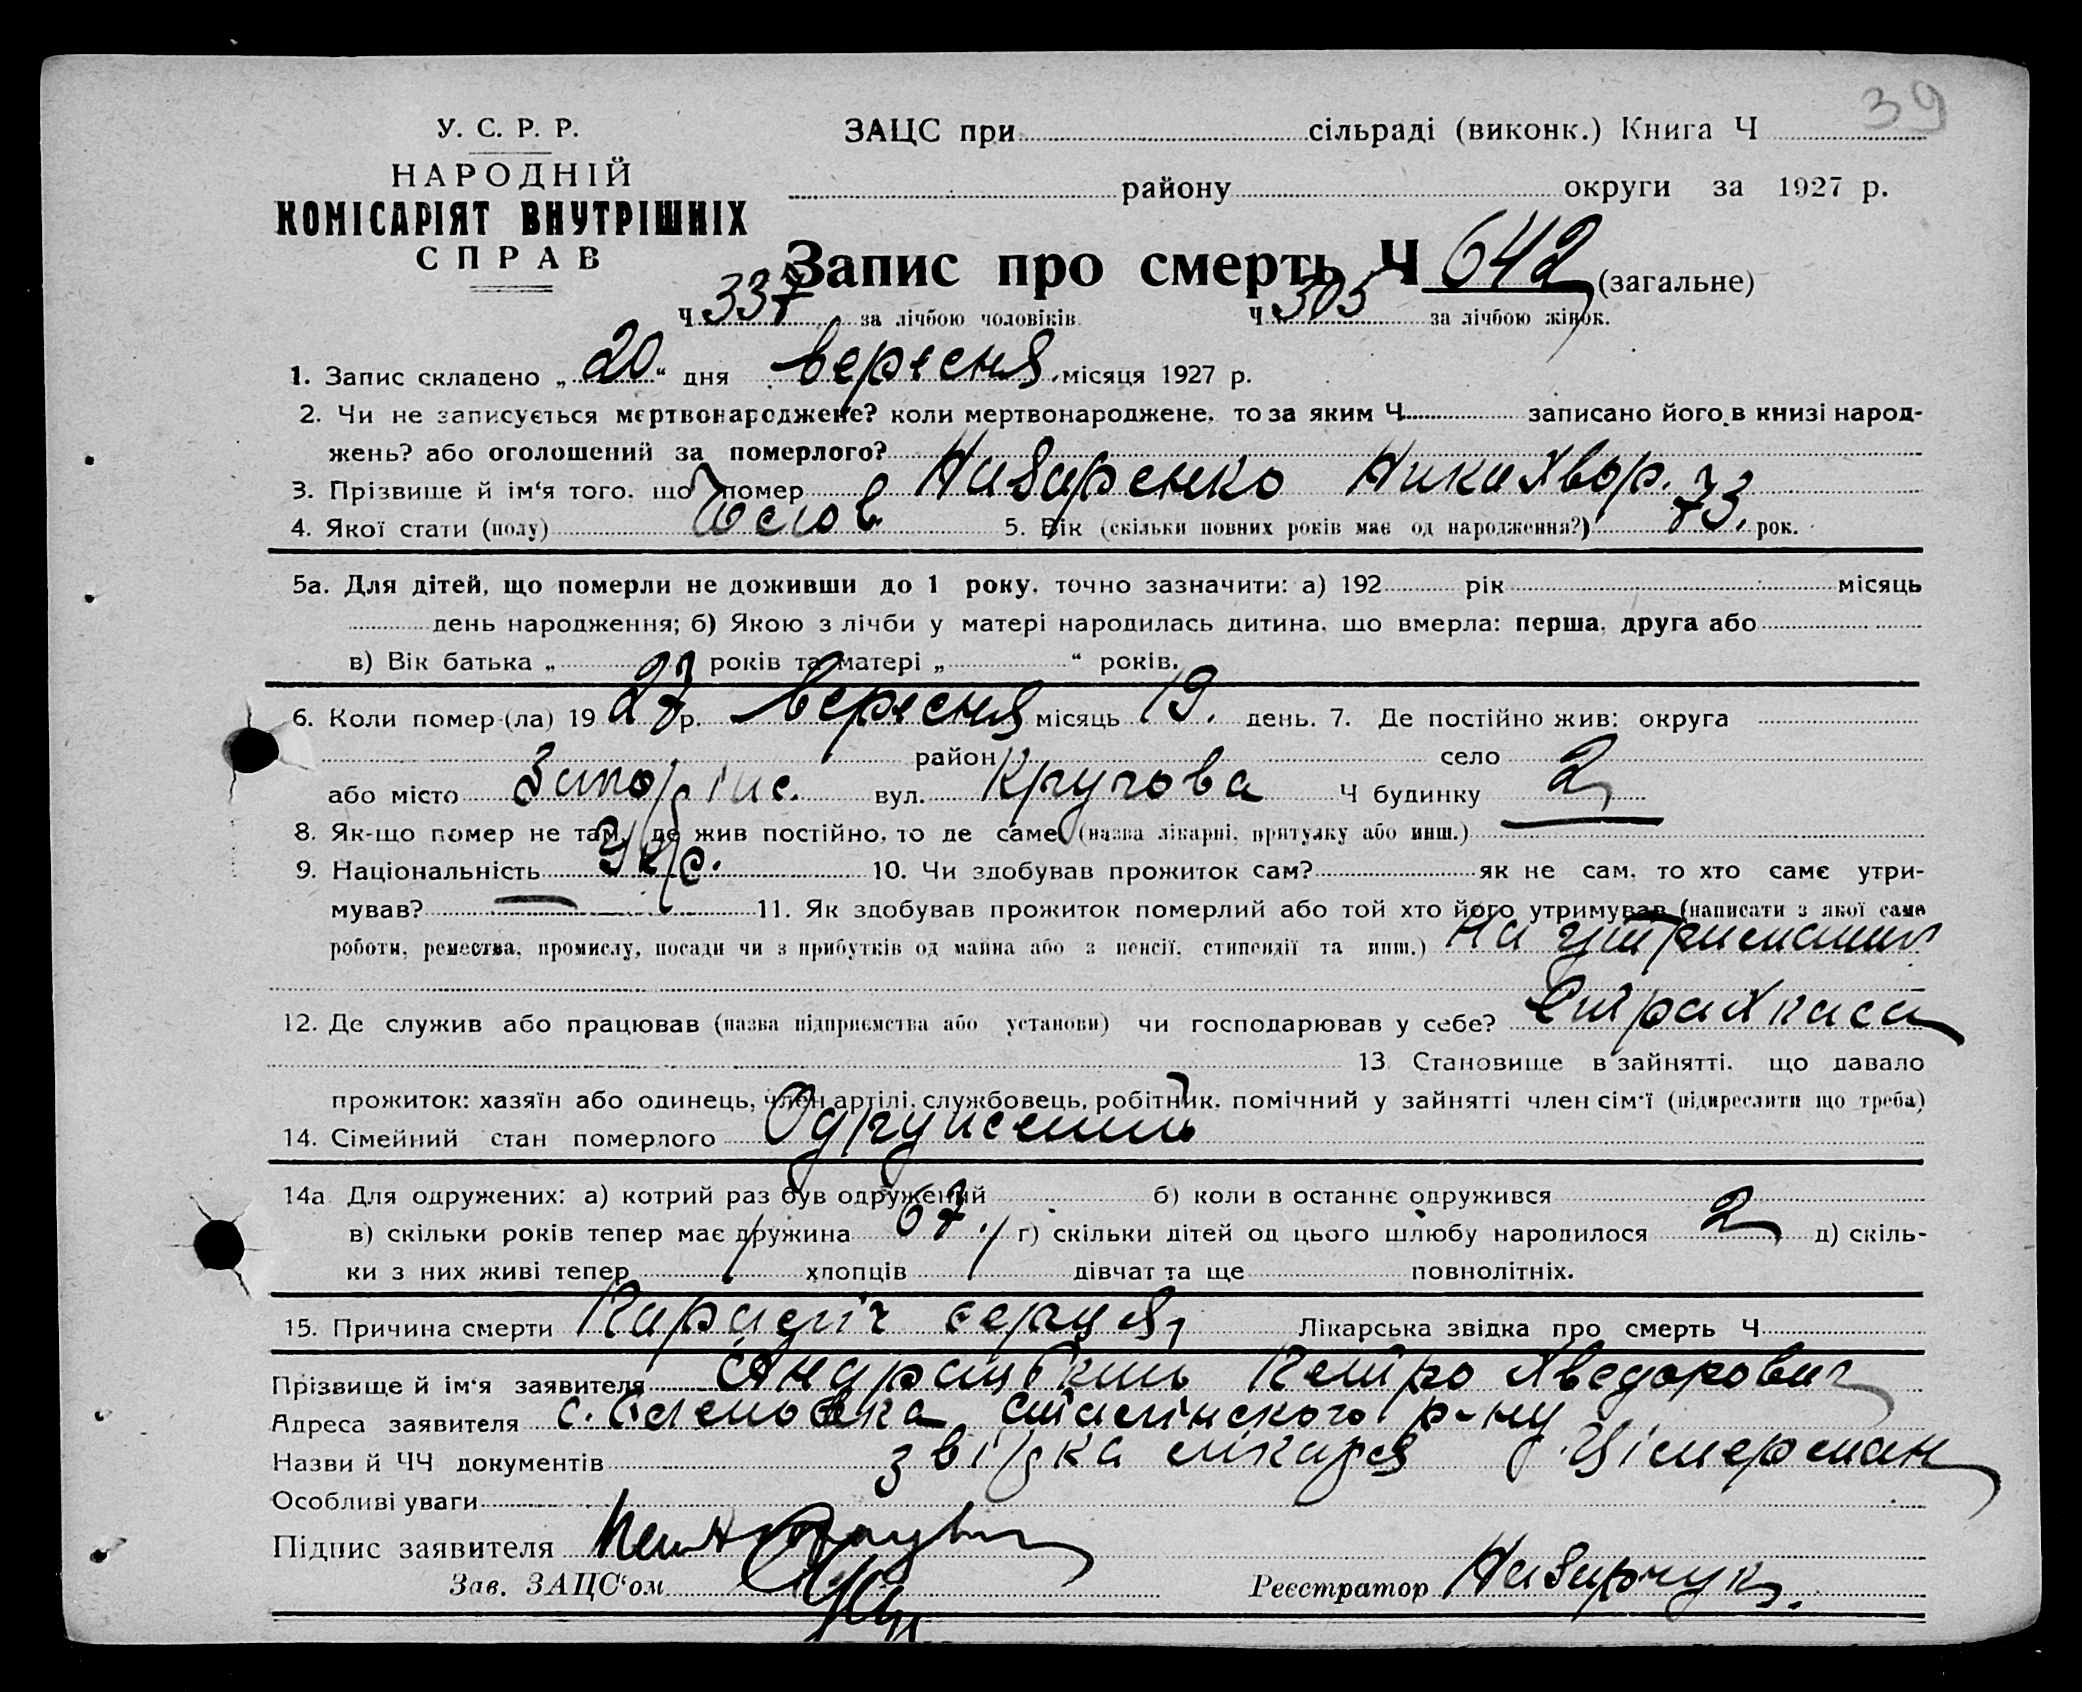 39
У. С. Р. Р.
НАРОДНІЙ
КОМІСАРІЯТ ВНУТРІШНІХ
СПРАВ
ЗАЦС при сільраді (виконк.) Книга Ч
району округи за 1927 р.
Запис про смерть Ч 642 (загальне)
Ч 337 за лічбою чоловіків. Ч 305 за лічбою жінок.
1. Запис складено „20“ дня вересня місяця 1927 р.
2. Чи не записується мертвонароджене? коли мертвонароджене, то за яким Ч записано його в книзі народ-
жень? або оголошений за померлого?
3. Прізвище й ім'я того, що помер Назаренко Никихвор.
4. Якої стати (полу) Чолов. 5. Вік (скільки повних років має од народження?) 73. рок.
5а. Для дітей, що померли не доживши до 1 року, точно зазначити: а) 192 рік місяць
день народження; б) Якою з лічби у матері народилась дитина, що вмерла: перша, друга або
в) Вік батька „ років та матері „ “ років.
6. Коли помер-(ла) 19 27 р. вересня місяць 19. день. 7. Де постійно жив: округа
район село
або місто Запоріж. вул. Ч будинку 2
8. Як-що помер не там, де жив постійно, то де саме (назва лікарні, притулку або инш.)
9. Національність Укр. 10. Чи здобував прожиток сам? як не сам, то хто саме утри-
мував? — 11. Як здобував прожиток померлий або той хто його утримував (написати з якої саме
роботи, ремества, промислу, посади чи з прибутків од майна або з пенсії, стипендії та инш.) На утриманні
12. Де служив або працював (назва підприємства або установи) чи господарював у себе? Страхкаса
13 Становище в зайнятті, що давало
прожиток: хазяїн або одинець, член артілі, службовець, робітник, помічний у зайнятті член сім'ї (підкреслити що треба)
14. Сімейний стан померлого Одружений
14а Для одружених: а) котрий раз був одружений б) коли в останнє одружився
в) скільки років тепер має дружина 67. г) скільки дітей од цього шлюбу народилося 2 д) скіль-
ки з них живі тепер 1 хлопців 1 дівчат та ще повнолітніх.
15. Причина смерти Параліч серця, Лікарська звідка про смерть Ч
Прізвище й ім'я заявителя Петро Хведорович
Адреса заявителя с. Сталінского р-ну
Назви й ЧЧ документів звідка лікаря Цімерман
Особливі уваги
Підпис заявителя
Зав. ЗАЦС'ом Реєстратор Назарчук.